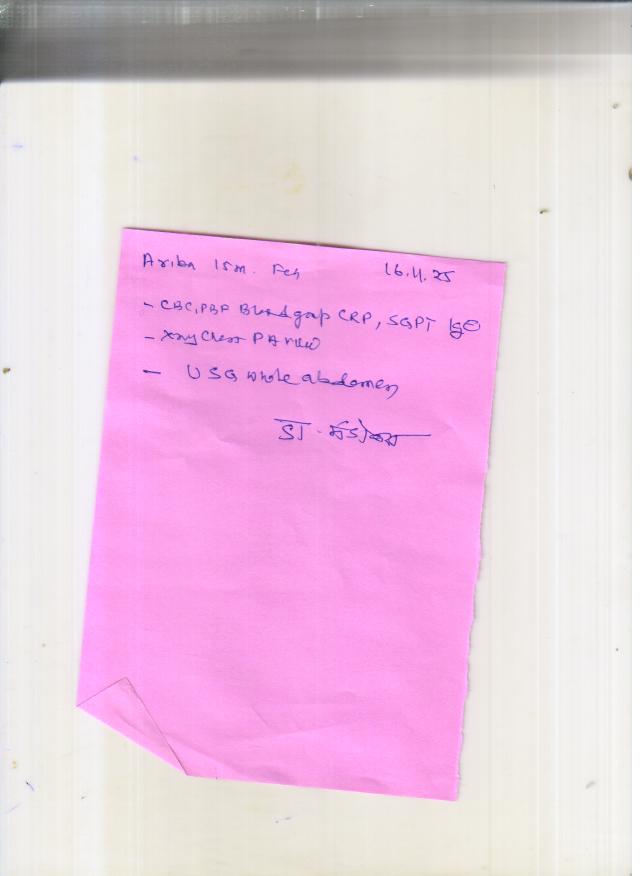 Ariba 15m. Fch 16.11.25
- CBC, PBF Blood group CRP, SGPT IgE
- Xray Chest PA view
- USG whole abdomen
डॉ.